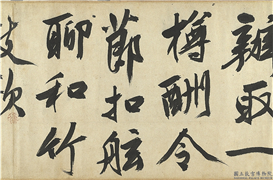 辦取一
樽酬令
節扣舷
聊和竹
國立故宮博物院